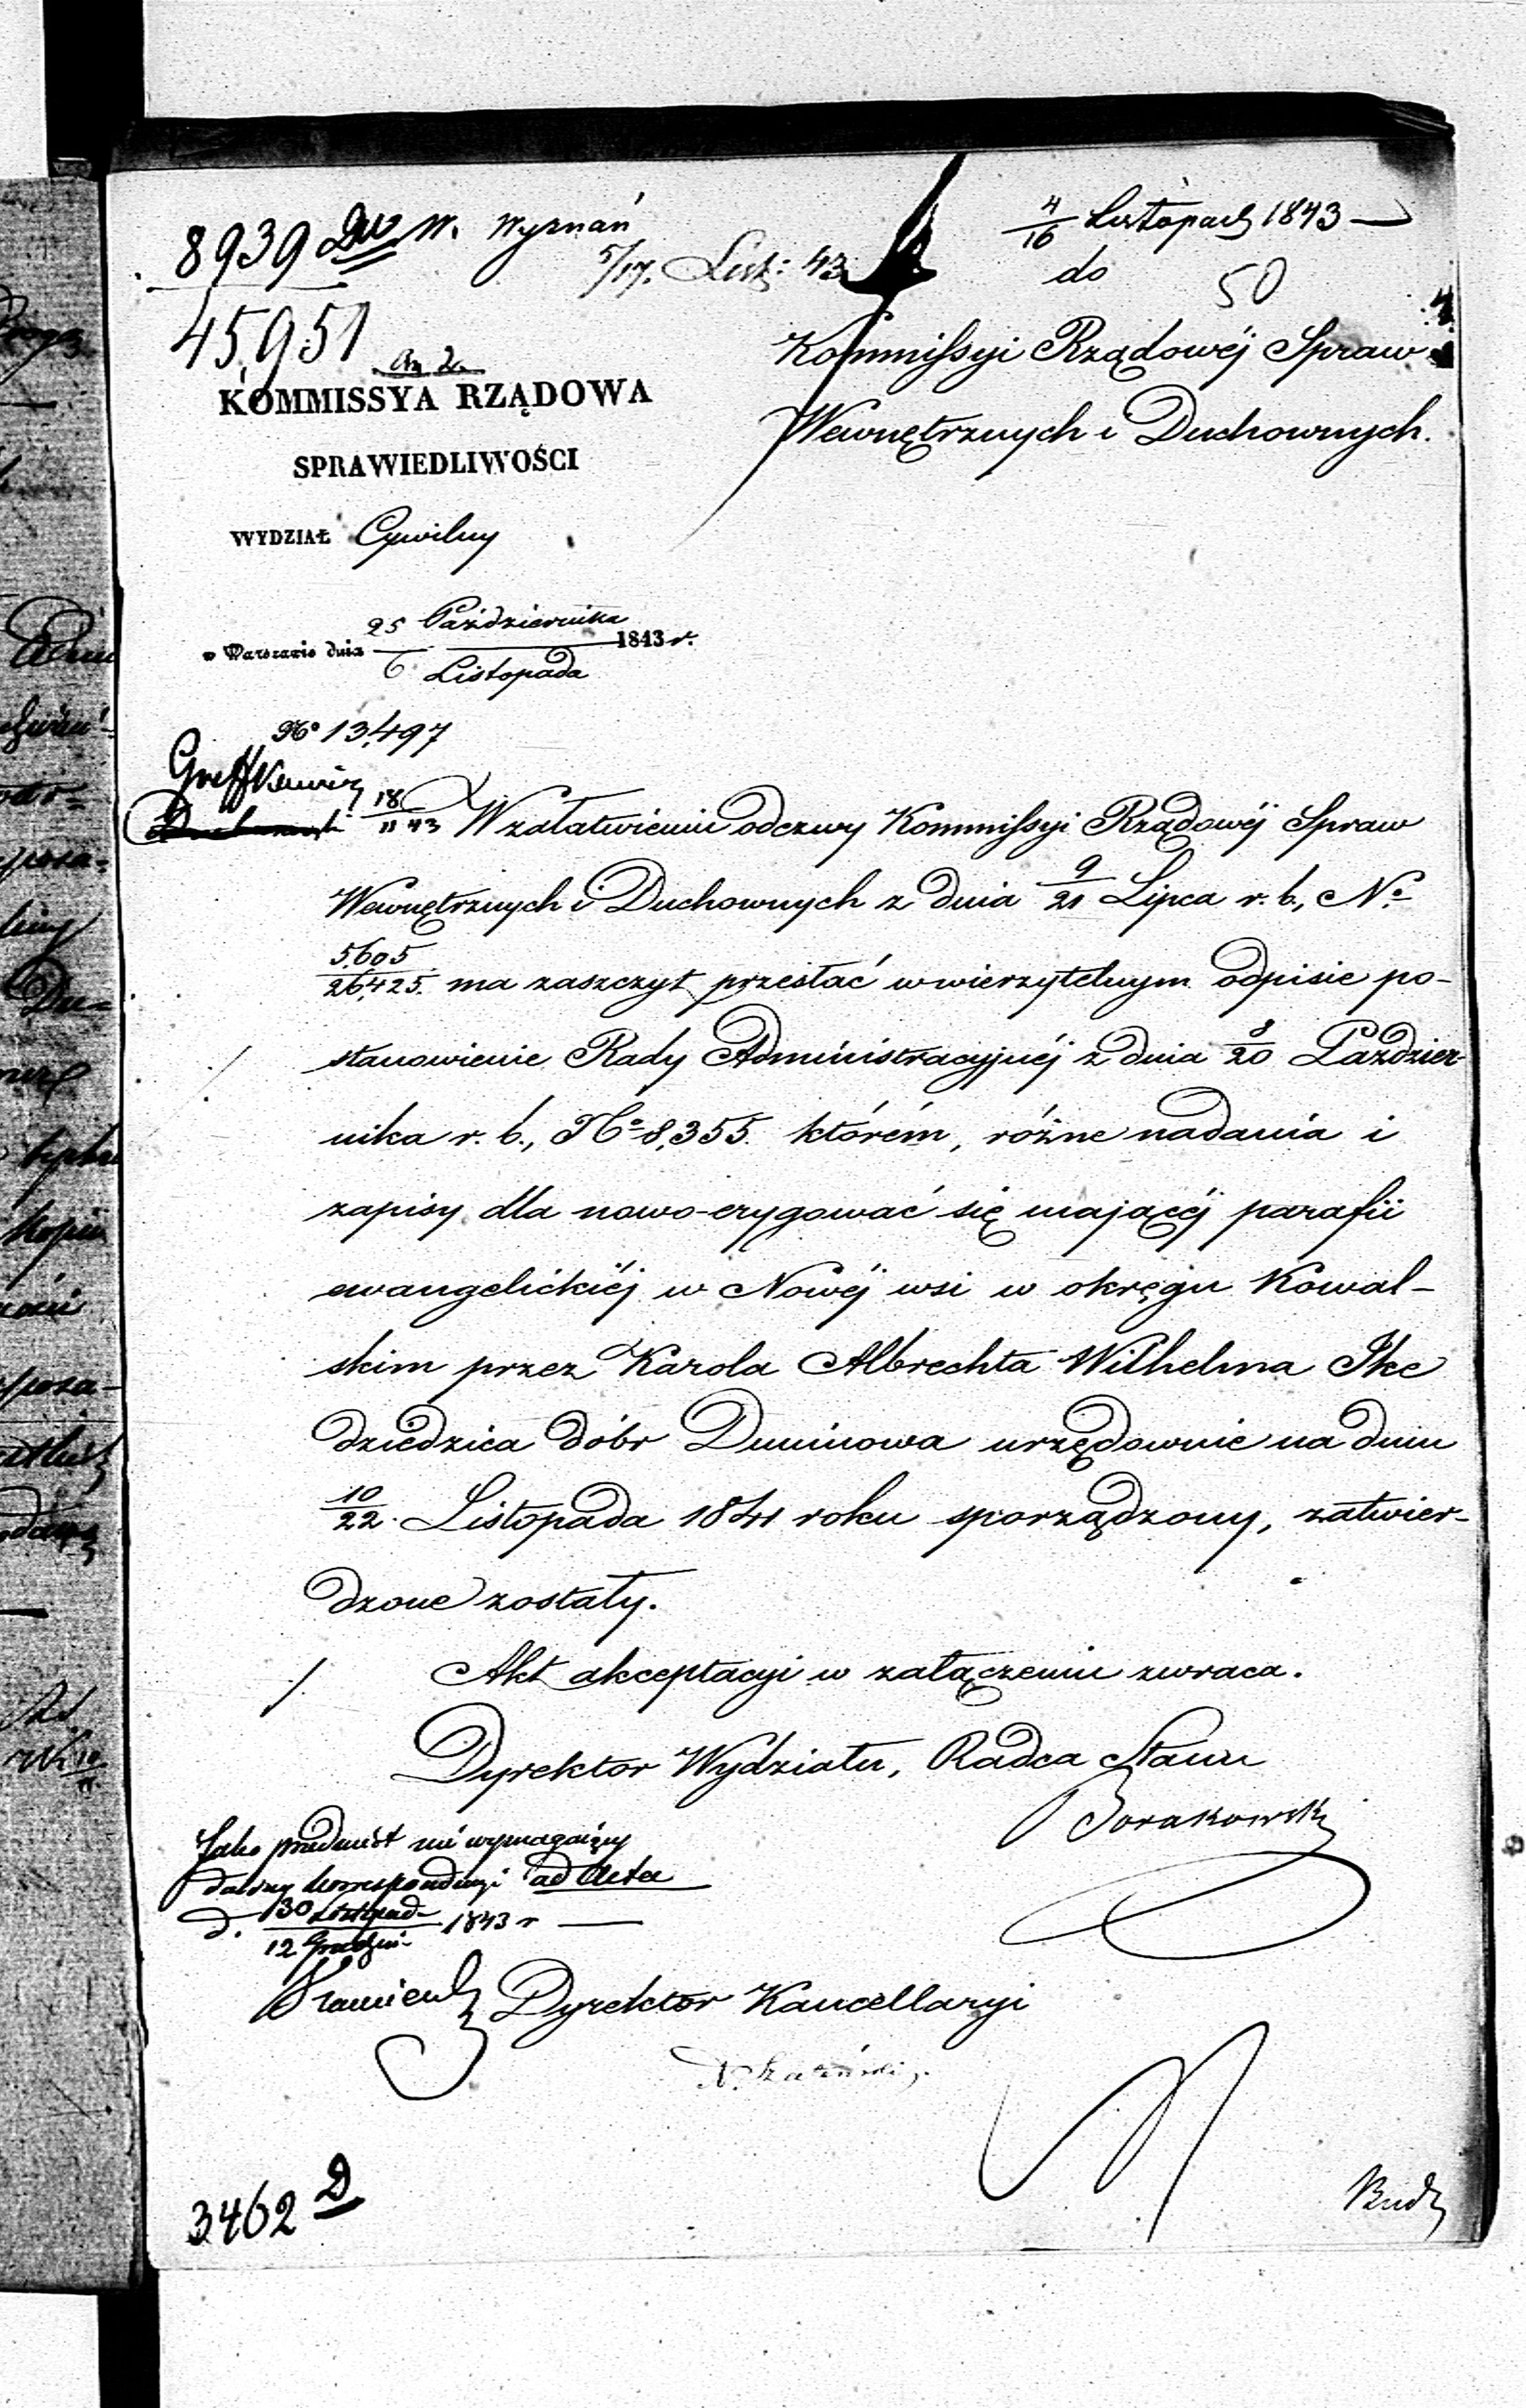 8939 W. Wyznań
45,951
5/17. List: 43
4/16 Listopad 1843
do
50
Kommissyi Rządowéj Spraw
Wewnętrznych i Duchownych.
KOMMISSYA RZĄDOWA
SPRAWIEDLIWOŚCI
WYDZIAŁ Cywilny
w Warszawie dnia 25 Października / 6 Listopada 1843 r.
No 13,497
18/11 43
W załatwieniu odezwy Kommissyi Rządowéj Spraw
Wewnętrznych i Duchownych z dnia 9/21 Lipca r. b., No
5,605/26,425. ma zaszczyt przesłać w wierzytelnym odpisie po-
stanowienie Rady Administracyjnéj z dnia 8/20 Paździer-
nika r. b., No 8,355. którém, różne nadania i
zapisy dla nowo-erygować się mającéj parafii
ewangelickiéj w Nowéj wsi w okręgu Kowal-
skim przez Karola Albrechta Wilhelma Ike
dziedzica dóbr Duninowa urzędownie na dniu
10/22. Listopada 1841 roku sporządzony, zatwier-
dzone zostały.
Akt akceptacyi w załączeniu zwraca.
Dyrektor Wydziału, Radca Stanu
Jako przedmiot nie wymagaiący
dalszey korrespondencyi ad Acta
d. 30 Listopad / 12 Grudzień 1843 r
Dyrektor Kancellaryi
3462 D